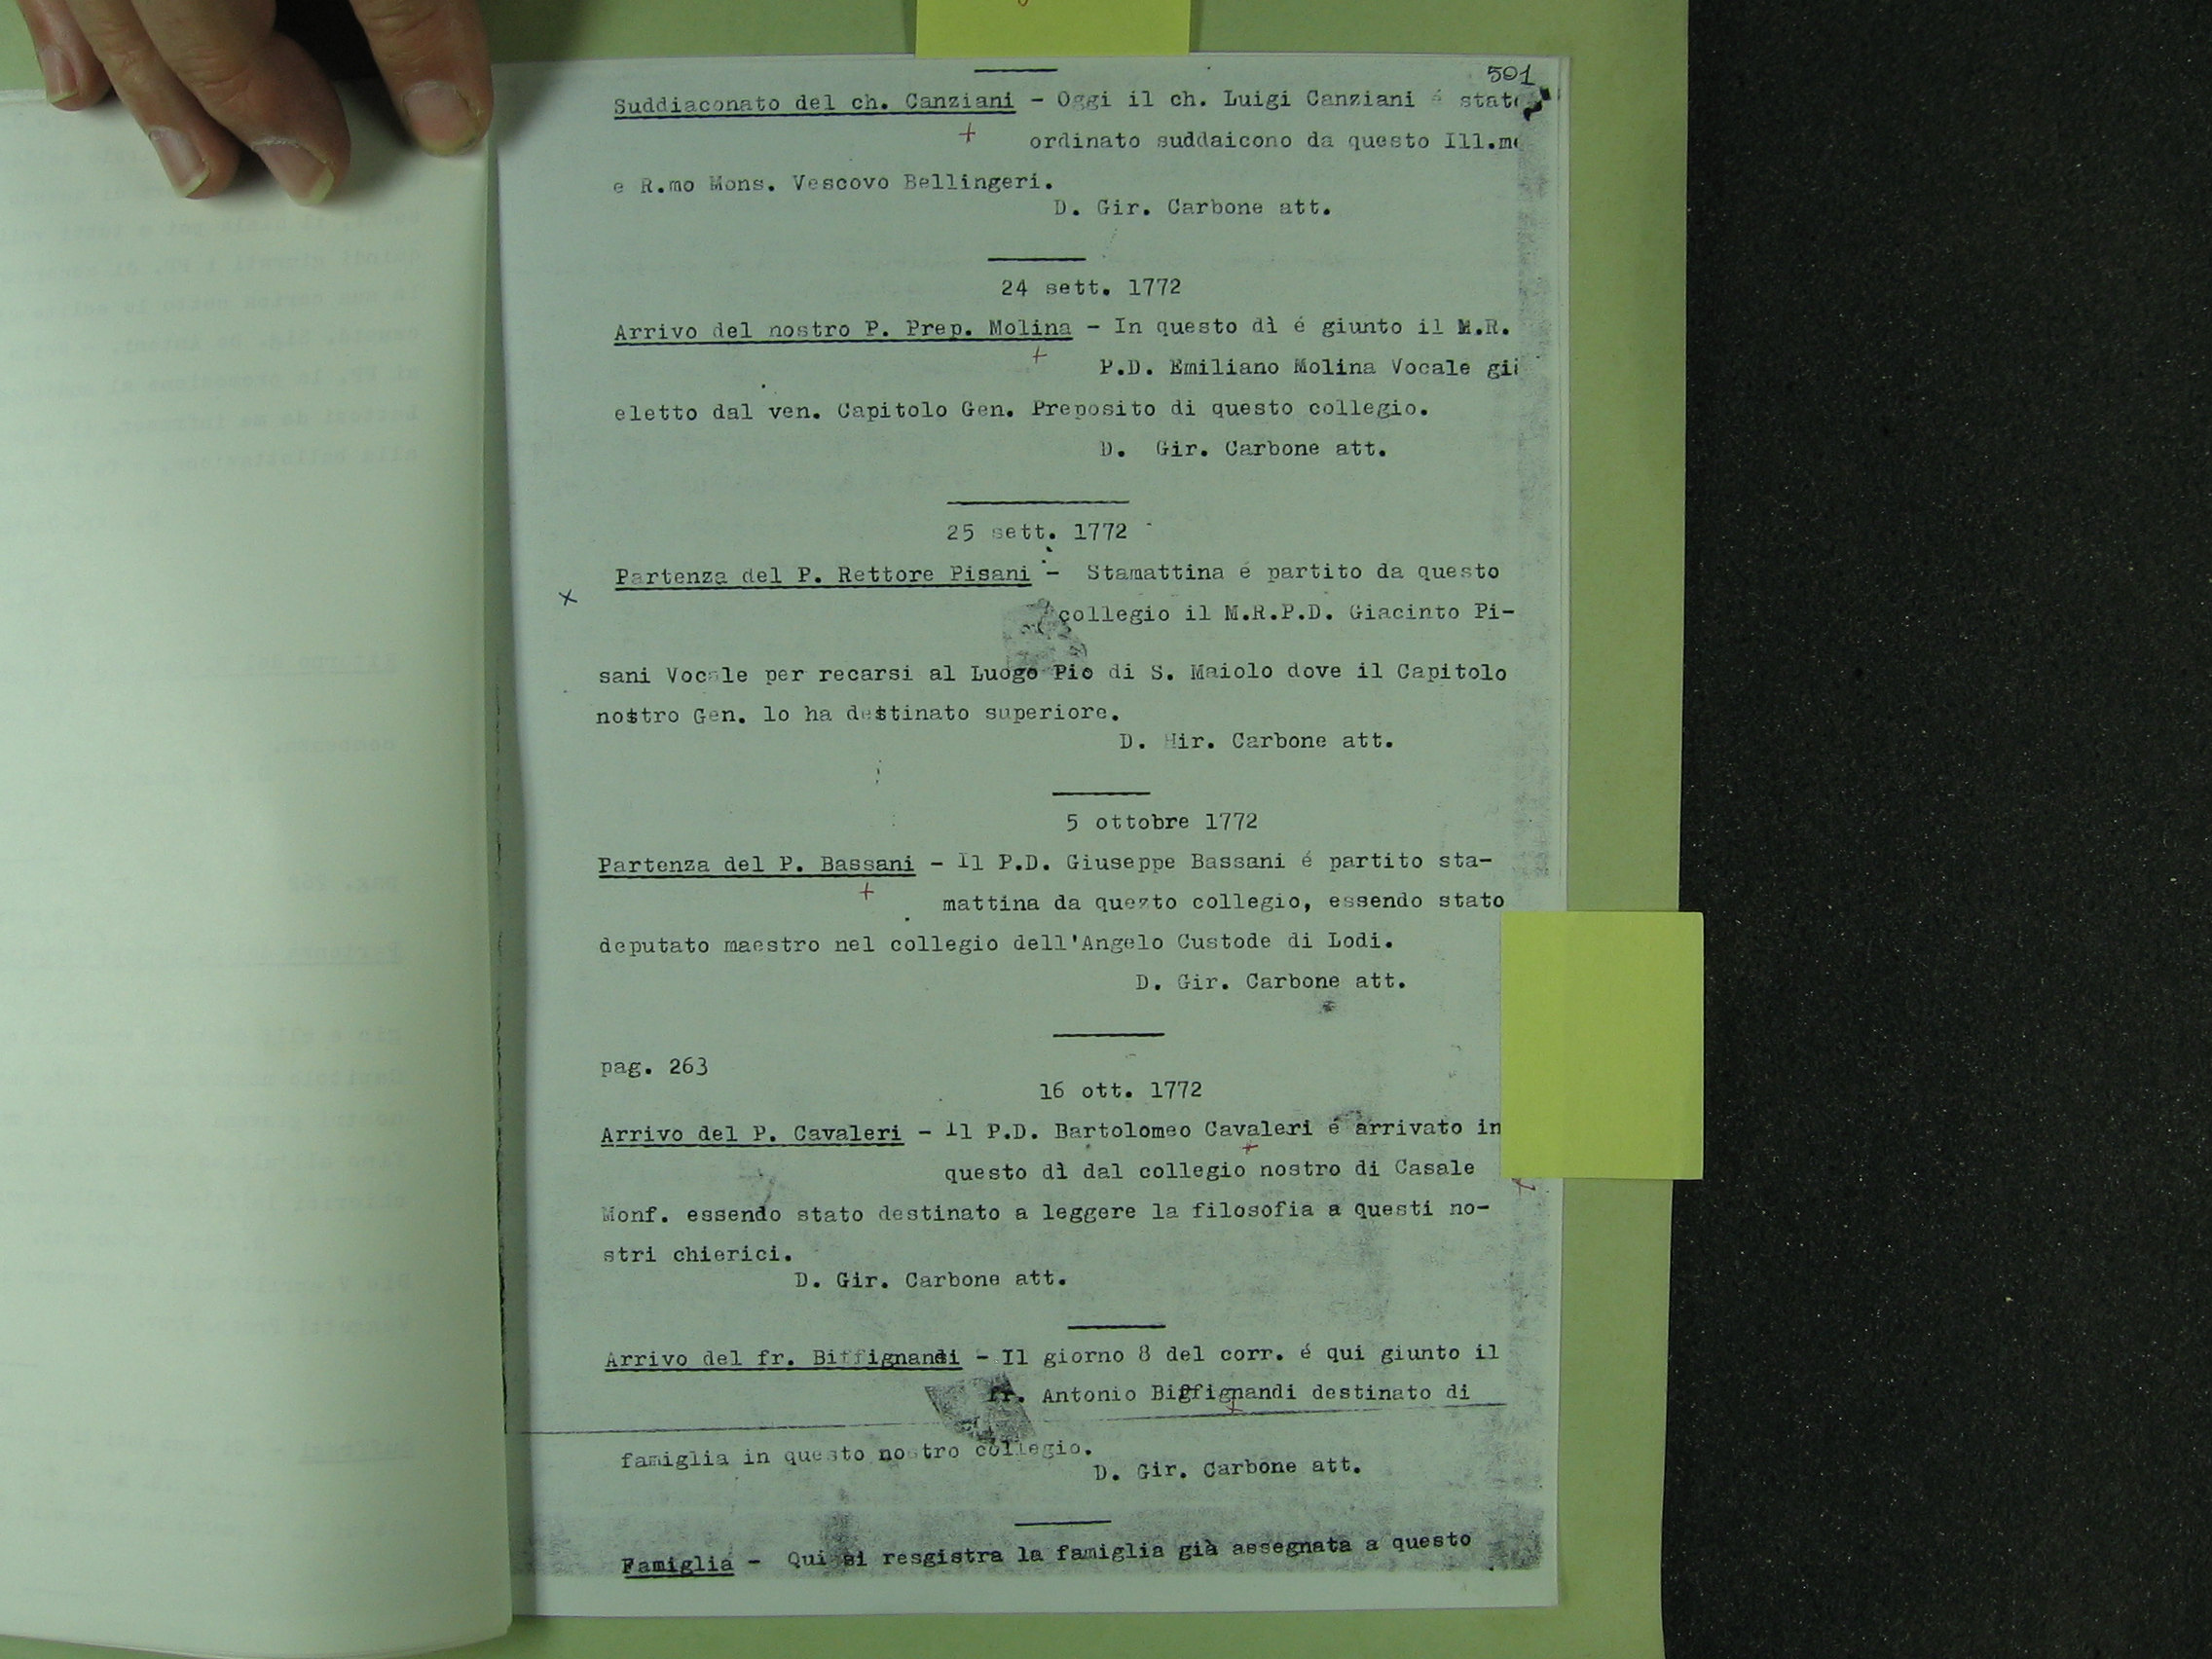 501
Suddiaconato del ch. Canziani - Oggi il ch. Luigi Canziani é stato
ordinato suddaicono da questo Ill.mo
e R.mo Mons. Vescovo Bellingeri.
D. Gir. Carbone att.
24 sett. 1772
Arrivo del nostro P. Prep. Molina - In questo dì é giunto il M.R.
P.D. Emiliano Molina Vocale già
eletto dal ven. Capitolo Gen. Preposito di questo collegio.
D. Gir. Carbone att.
25 sett. 1772
Partenza del P. Rettore Pisani - Stamattina é partito da questo
collegio il M.R.P.D. Giacinto Pi-
sani Vocale per recarsi al Luogo Pio di S. Maiolo dove il Capitolo
nostro Gen. lo ha destinato superiore.
D. Hir. Carbone att.
5 ottobre 1772
Partenza del P. Bassani - Il P.D. Giuseppe Bassani é partito sta-
mattina da quezto collegio, essendo stato
deputato maestro nel collegio dell'Angelo Custode di Lodi.
D. Gir. Carbone att.
pag. 263
16 ott. 1772
Arrivo del P. Cavaleri - Il P.D. Bartolomeo Cavaleri é arrivato in
questo dì dal collegio nostro di Casale
Monf. essendo stato destinato a leggere la filosofia a questi no-
stri chierici.
D. Gir. Carbone att.
Arrivo del fr. Biffignandi - Il giorno 8 del corr. é qui giunto il
fr. Antonio Biffignandi destinato di
famiglia in questo nostro collegio.
D. Gir. Carbone att.
Famiglia - Qui si resgistra la famiglia già assegnata a questo